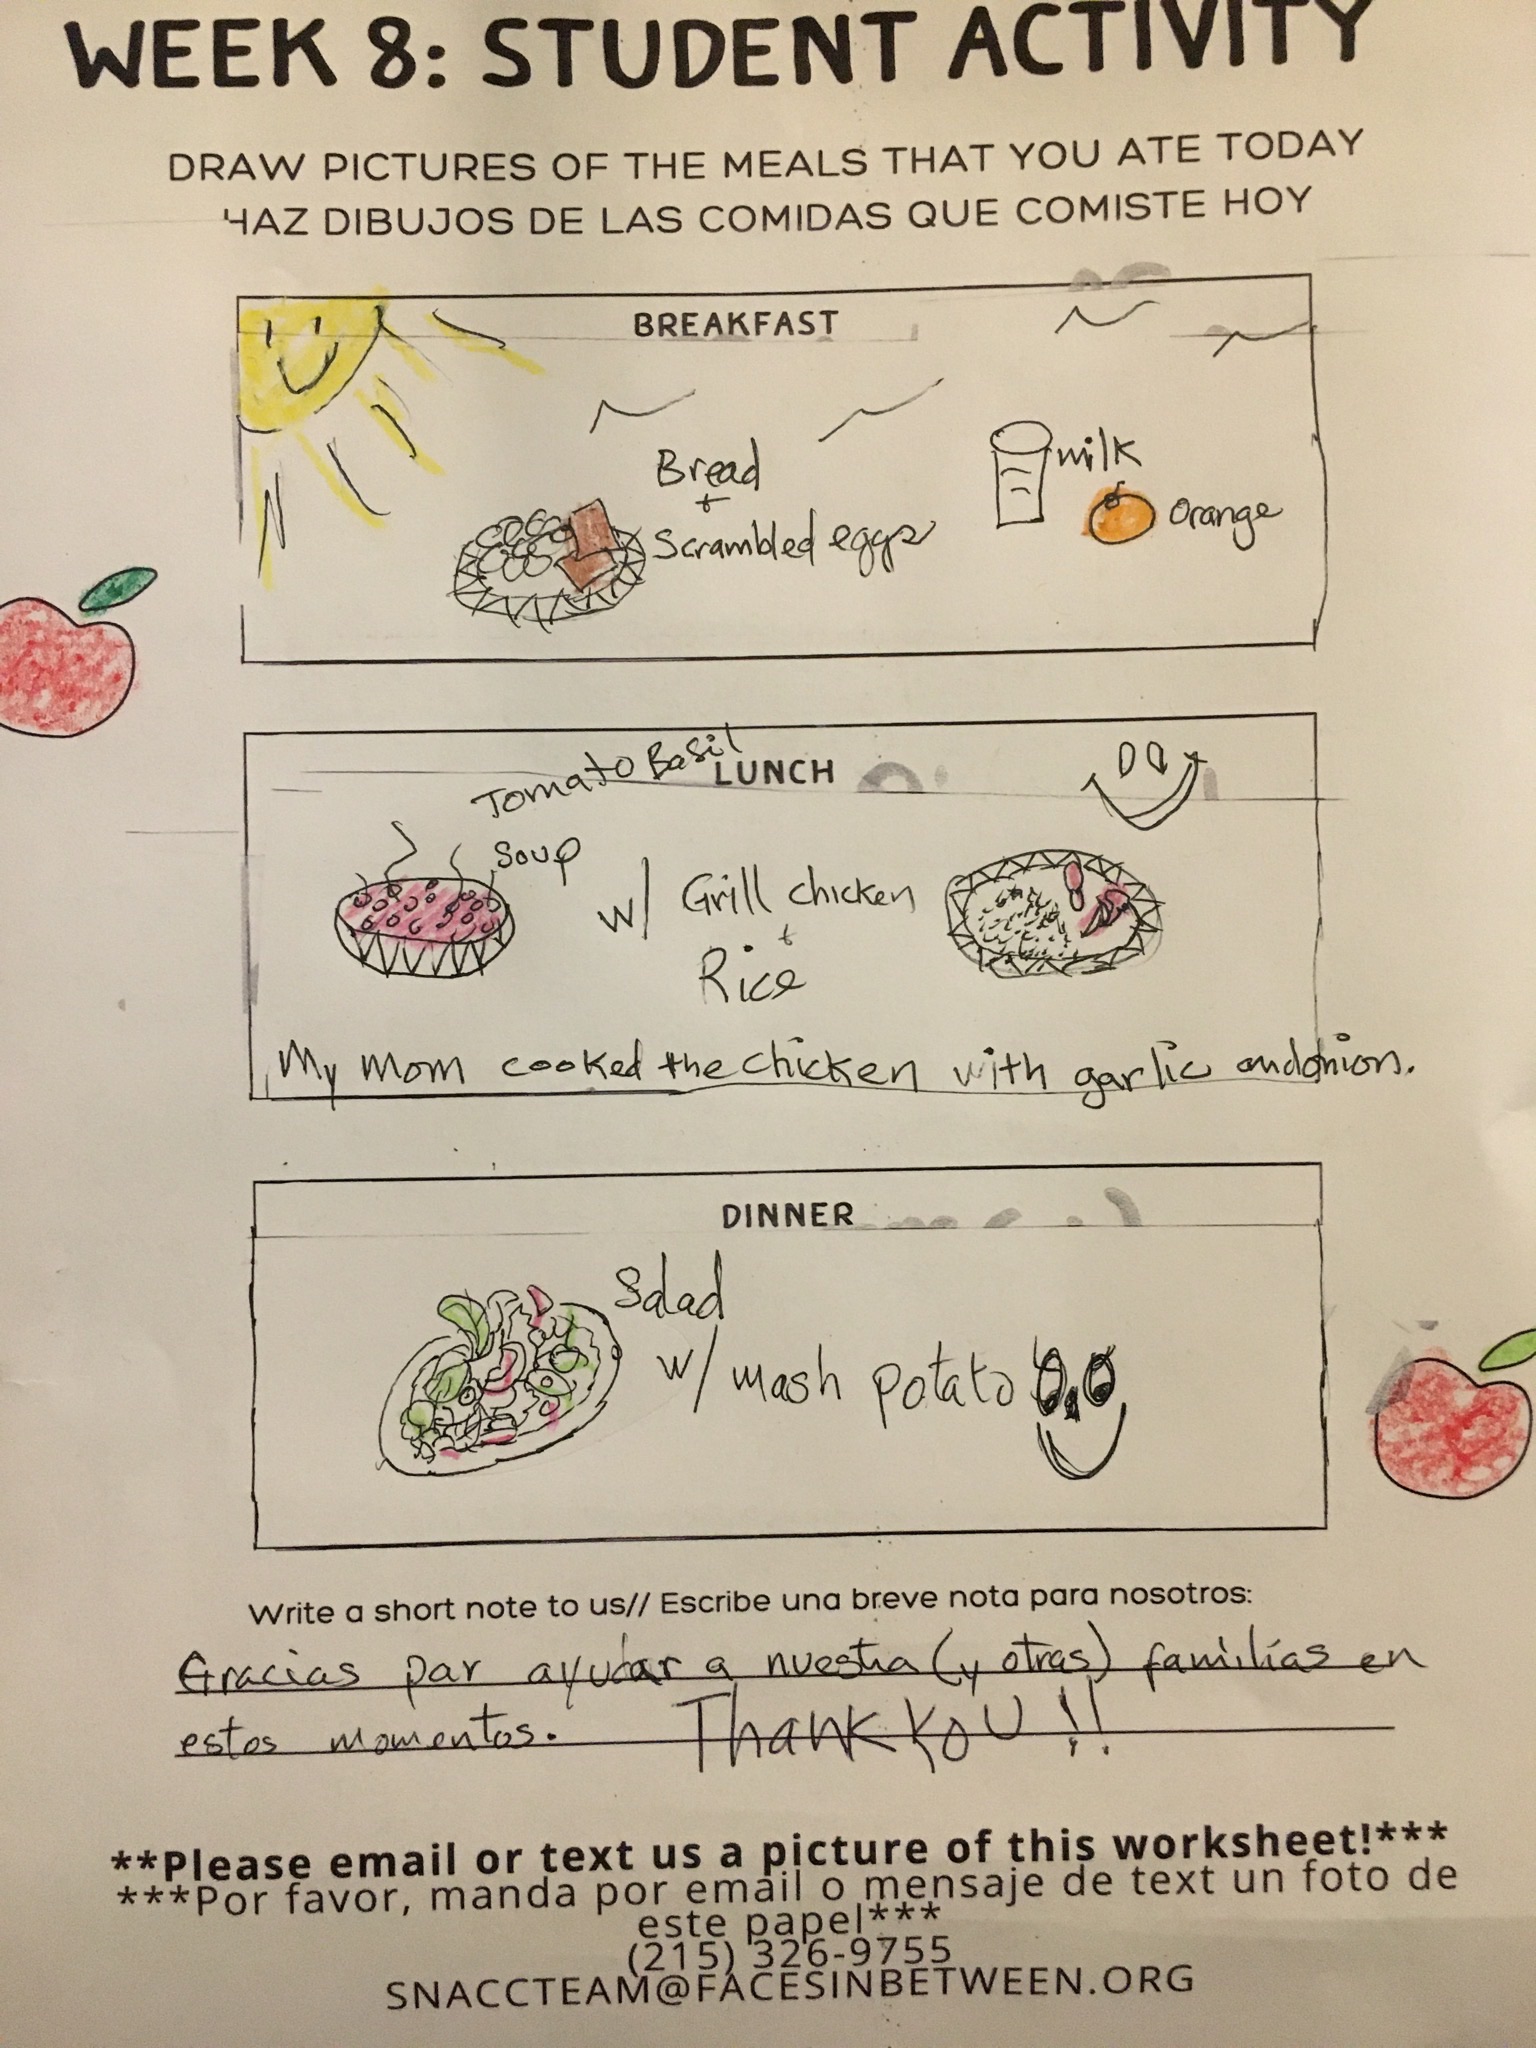 WEEK 8: STUDENT ACTIVITY
DRAW PICTURES OF THE MEALS THAT YOU ATE TODAY
HAZ DIBUJOS DE LAS COMIDAS QUE COMISTE HOY
BREAKFAST
Bread
+
Scrambled eggs
milk
orange
LUNCH
Tomato Basil
Soup
w/ Grill chicken
+
Rice
My mom cooked the chicken with garlic and onion.
DINNER
Salad
w/ mash potato
Write a short note to us// Escribe una breve nota para nosotros:
Gracias por ayudar a nuestra (y otras) familias en
estos momentos. Thank YOU!!
**Please email or text us a picture of this worksheet!***
***Por favor, manda por email o mensaje de text un foto de
este papel***
(215) 326-9755
SNACCTEAM@FACESINBETWEEN.ORG